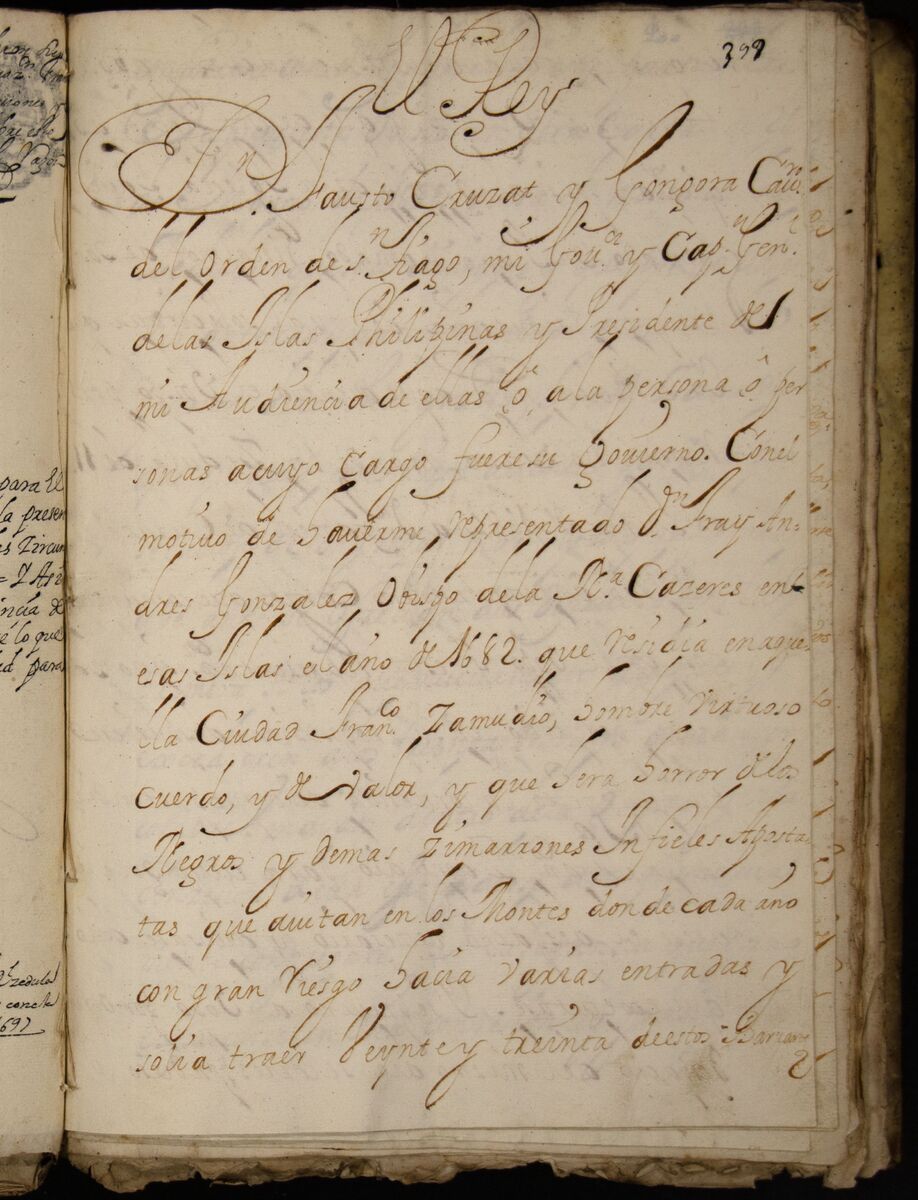 398
El Rey
Dn Fausto Cruzat y Gongora Cauro
del Orden de Sn Tiago, mi Gouor y Capn Genl
delas Islas Philipinas y Presidente de
mi Audiencia de ellas ô, ala persona ô per
sonas acuyo Cargo fuere su Gouierno. Conel
motiuo de hauerme representado Dn Fray An-
dres Gonzalez Obispo dela Na Cazeres en
esas Islas el año de 1682. que residia en aque
lla Ciudad Franco Zamudio, hombre virtuoso
cuerdo, y de Valor, y que hera horror de los
Negros y demas Zimarrones Infieles Aposta
tas que auitan en los Montes donde cada año
con gran riesgo hacia varias entradas y
solia traer Veynte y treinta de estos Barvaros
para El
la presen
es Zircun
= Y Asi
incia de
é lo que
ud para
zedula
conela
1697